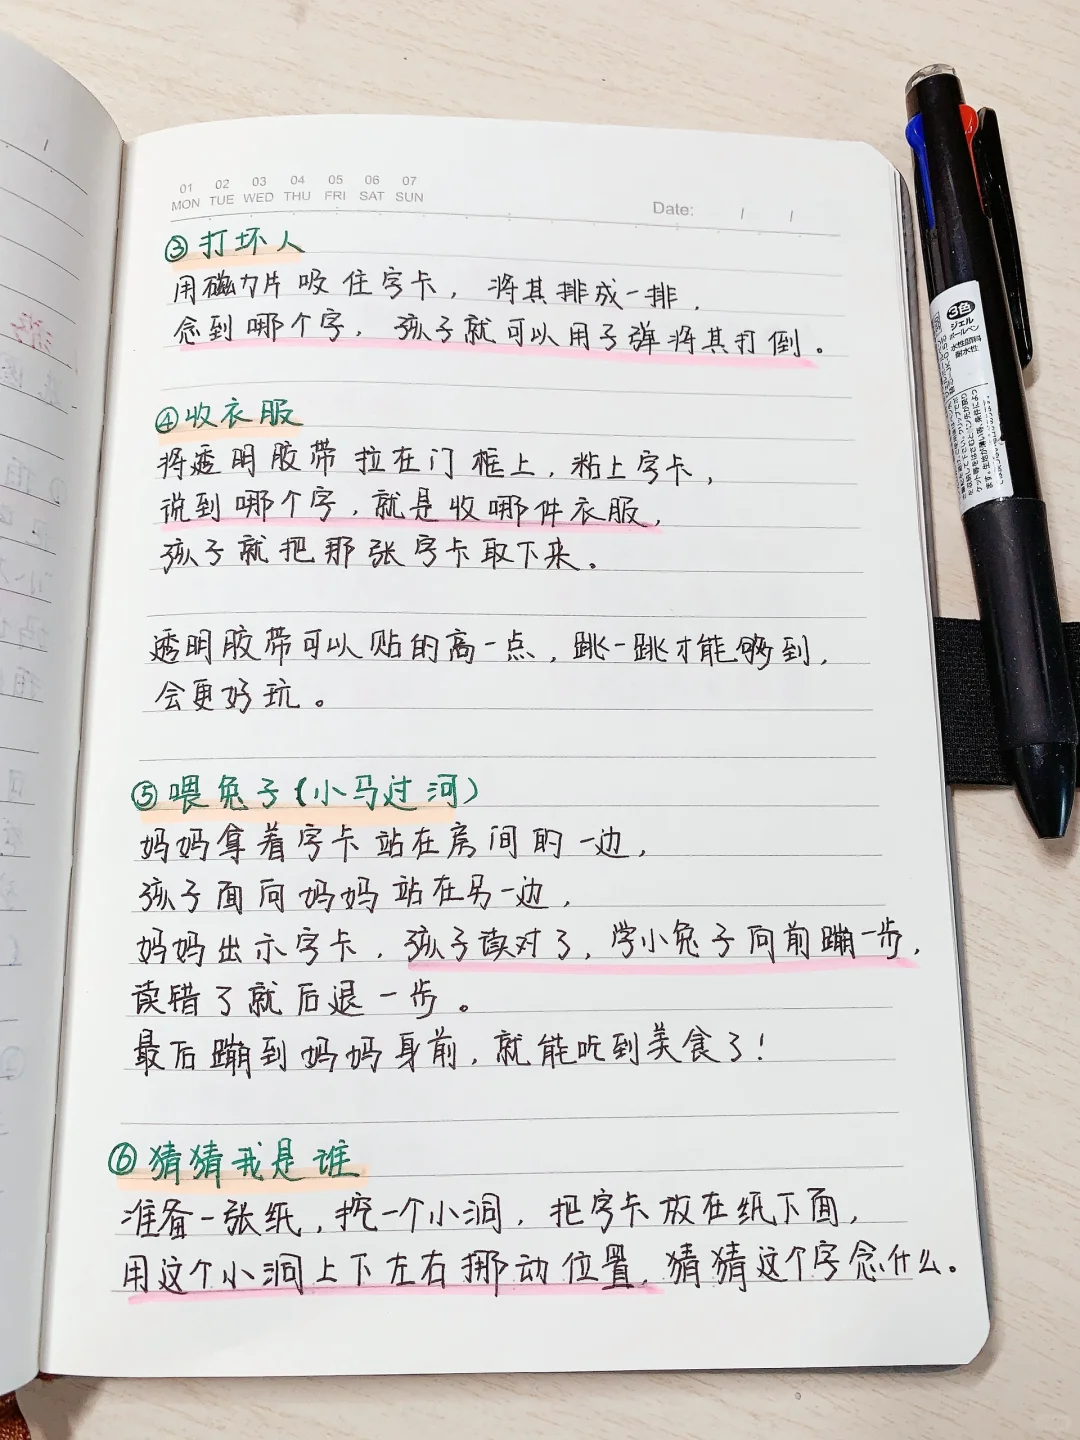 01 02 03 04 05 06 07
MON TUE WED THU FRI SAT SUN
Date: / /
③打坏人
用磁力片吸住字卡，将其排成一排，
念到哪个字，孩子就可以用子弹将其打倒。
④收衣服
将透明胶带拉在门框上，粘上字卡，
说到哪个字，就是收哪件衣服，
孩子就把那张字卡取下来。
透明胶带可以贴的高一点，跳一跳才能够到，
会更好玩。
⑤喂兔子(小马过河)
妈妈拿着字卡站在房间的一边，
孩子面向妈妈站在另一边，
妈妈出示字卡，孩子读对了，学小兔子向前蹦一步，
读错了就后退一步。
最后蹦到妈妈身前，就能吃到美食了！
⑥猜猜我是谁
准备一张纸，挖一个小洞，把字卡放在纸下面，
用这个小洞上下左右挪动位置，猜猜这个字念什么。
3色
ジェル
ボールペン
水性顔料
耐水性